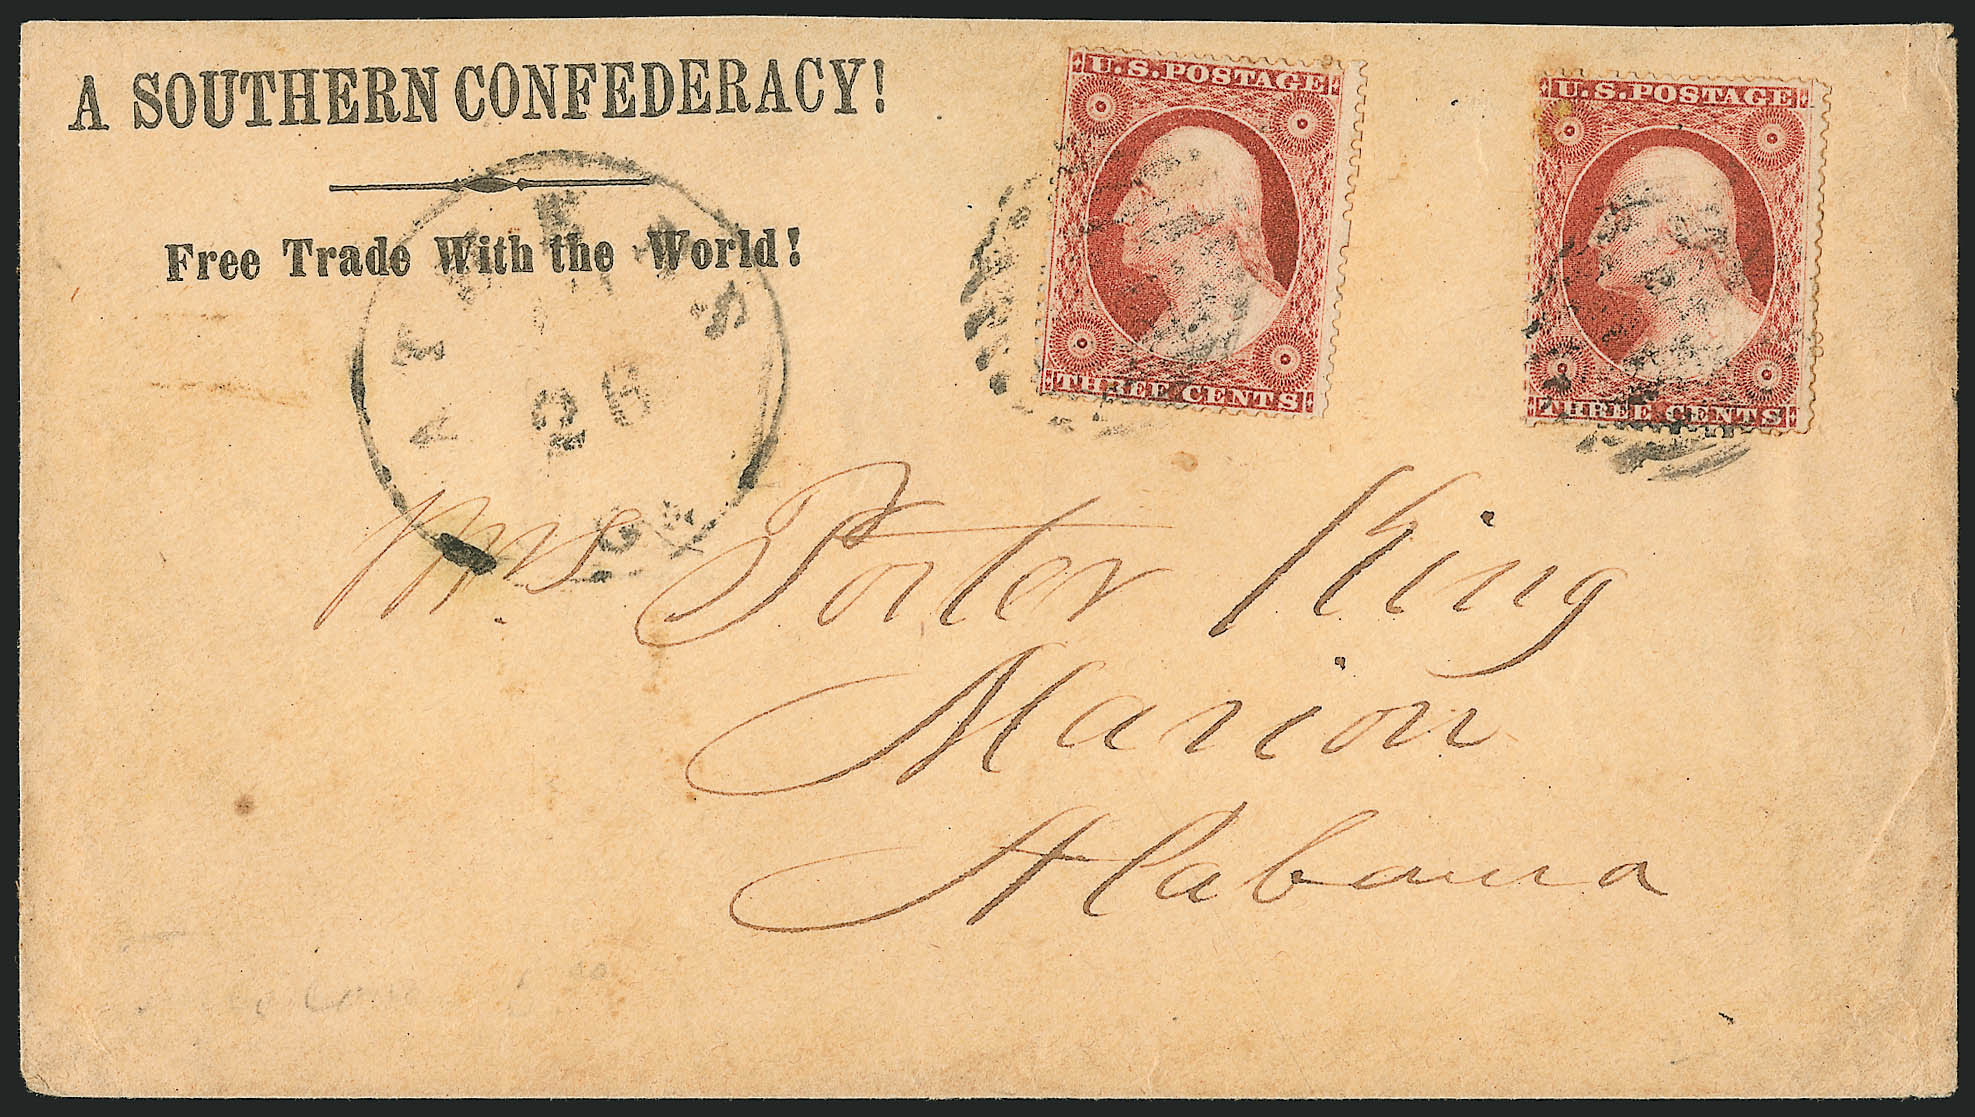 A SOUTHERN CONFEDERACY!
Free Trade With the World!
U.S.POSTAGE
THREE CENTS
U.S.POSTAGE
THREE CENTS
ATHENS
26
Ga
Mrs Porter King
Marion
Alabama